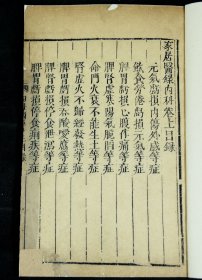 家居醫錄內科卷上目錄
元氣虧損內傷外感等症
飲食勞倦虧損元氣等症
脾胃虧損心腹作痛等症
脾腎虛寒陽氣脫陷等症
命門火衰不能生土等症
腎虛火不歸經發熱等症
脾胃虧損吞酸噯腐等症
脾胃虧損停食泄瀉等症
脾胃虧損停食痢疾等症